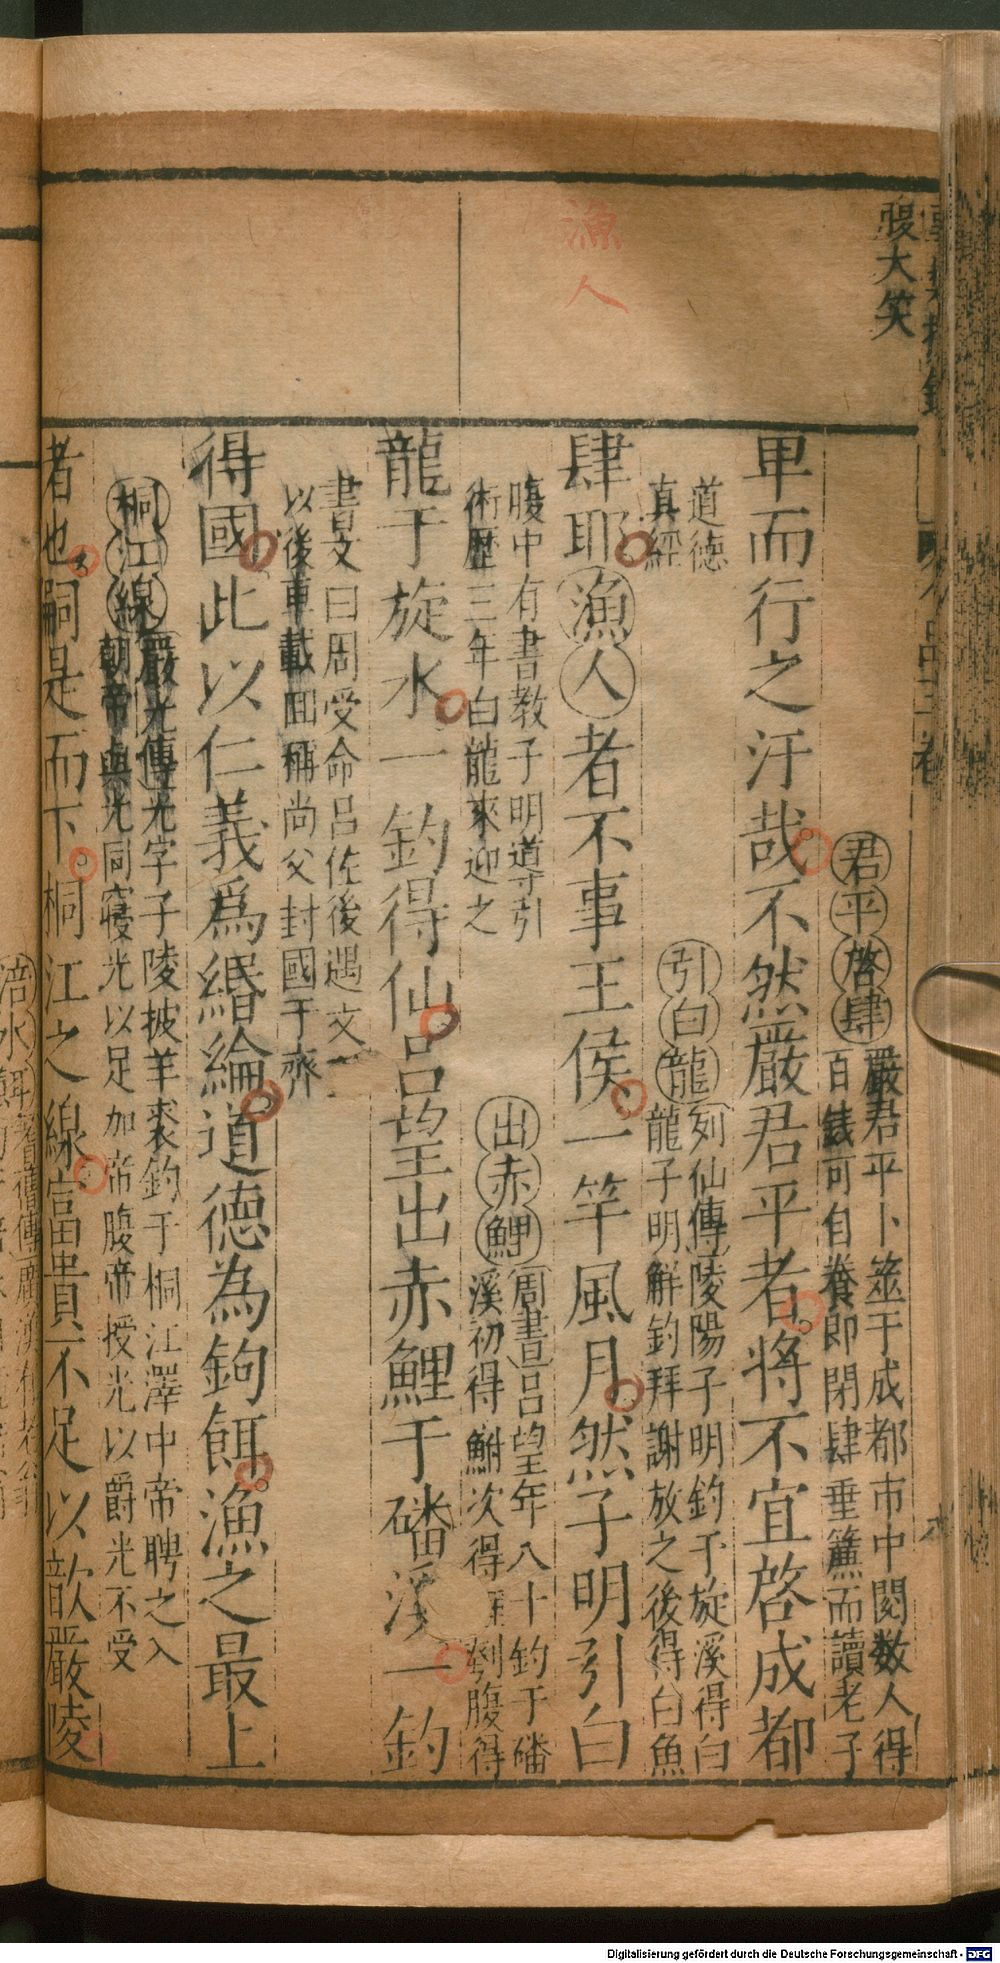 腹大笑
漁人
君平啓肆
嚴君平卜筮于成都市中閱数人得
百錢可自養即閉肆垂簾而讀老子
卑而行之汙哉不然嚴君平者將不宜啓成都
道德
真經
引白龍
列仙傳陵陽子明釣于旋溪得白
龍子明解釣拜謝放之後得白魚
肆耶漁人者不事王侯一竿風月然子明引白
腹中有書教子明導引
術歷三年白龍來迎之
出赤鯉
周書吕望年八十釣于磻
溪初得鮒次得 刳腹得
龍于旋水一釣得仙吕望出赤鯉于磻溪一釣
書文曰周受命吕佐後遇文
以後車載囬稱尚父封國于齊
得國此以仁義爲緡綸道德為鉤餌漁之最上
桐江線
嚴光傳光字子陵披羊裘釣于桐江澤中帝聘之入
朝帝與光同寢光以足加帝腹帝授光以爵光不受
者也嗣是而下桐江之線富貴不足以歆嚴陵
涪水
耆舊傳廣漢有老
Digitalisierung gefördert durch die Deutsche Forschungsgemeinschaft - DFG